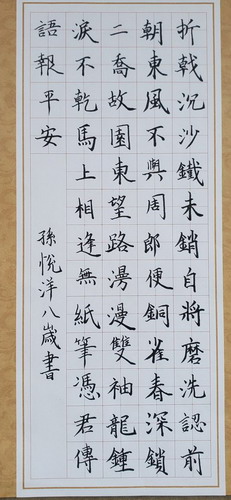 折戟沉沙鐵未銷自將磨洗認前
朝東風不與周郎便銅雀春深鎖
二喬故園東望路漫漫雙袖龍鍾
淚不乾馬上相逢無紙筆憑君傳
語報平安
孫悅洋八歲書